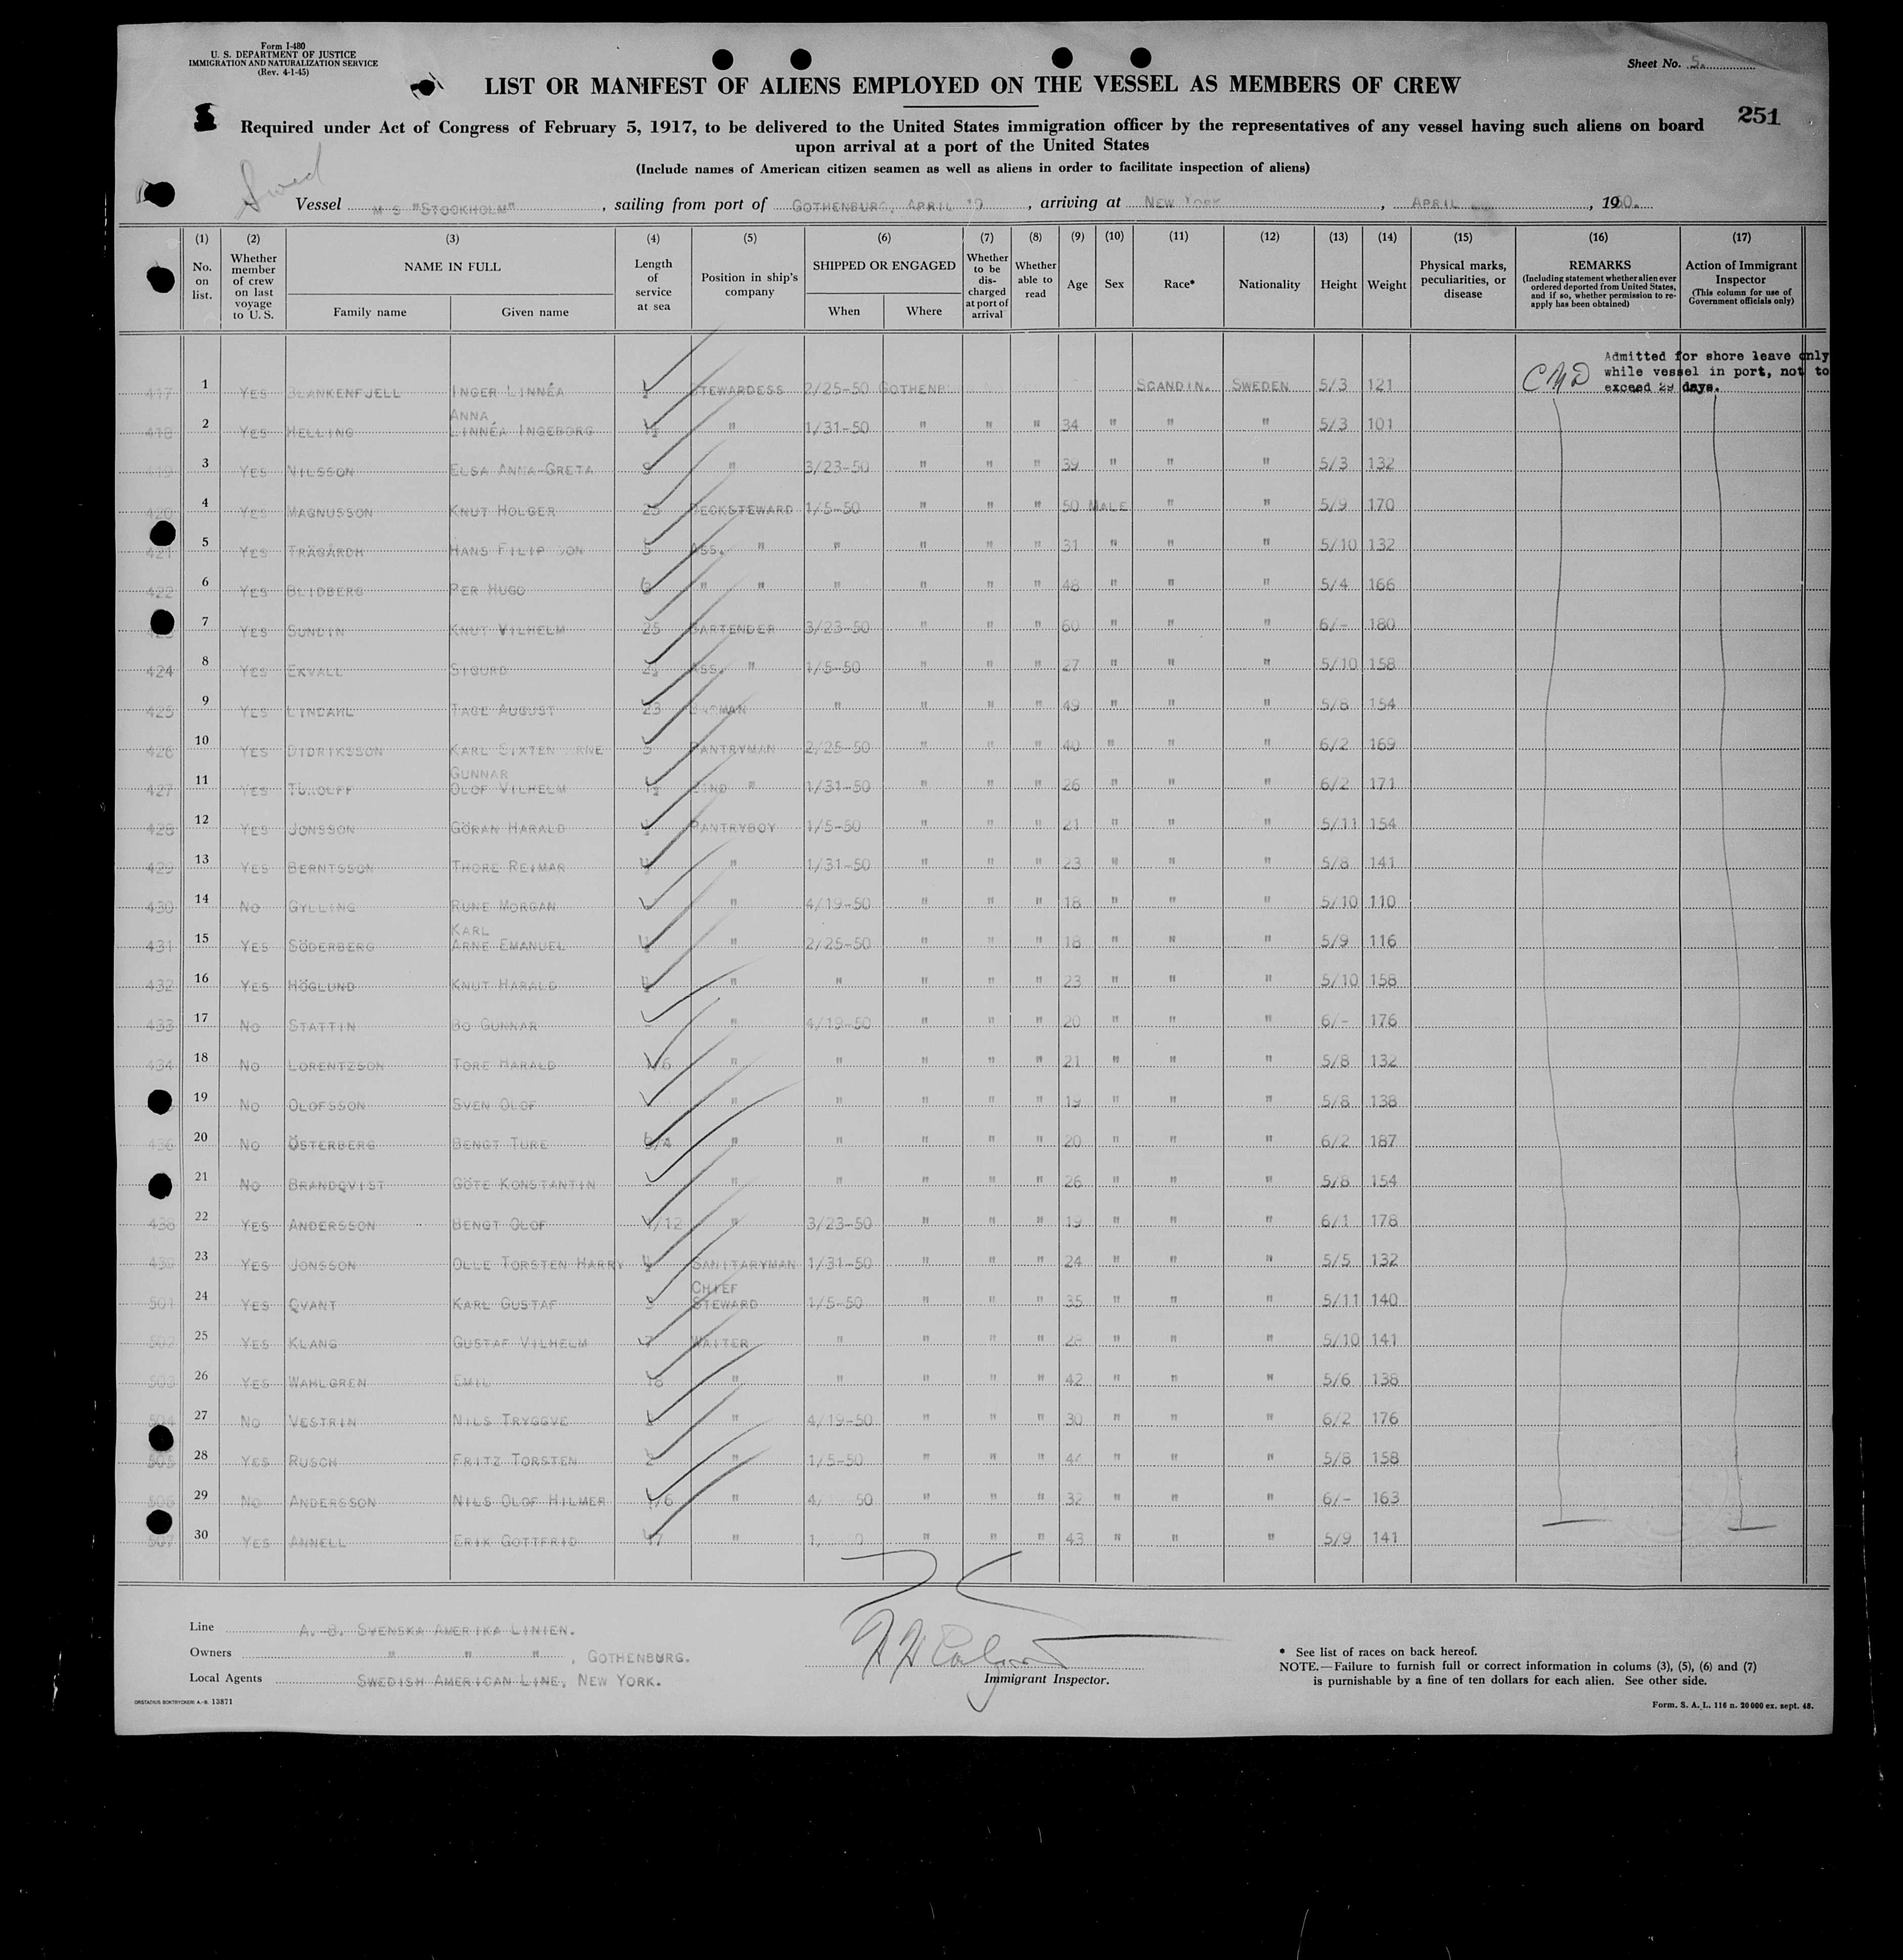 Form I-480
U. S. DEPARTMENT OF JUSTICE
IMMIGRATION AND NATURALIZATION SERVICE
(Rev. 4-1-45)
Sheet No. 5.
LIST OR MANIFEST OF ALIENS EMPLOYED ON THE VESSEL AS MEMBERS OF CREW
251
Required under Act of Congress of February 5, 1917, to be delivered to the United States immigration officer by the representatives of any vessel having such aliens on board
upon arrival at a port of the United States
(Include names of American citizen seamen as well as aliens in order to facilitate inspection of aliens)
Swed
Vessel M S "STOCKHOLM", sailing from port of GOTHENBURG, APRIL 19, arriving at NEW YORK, APRIL, 1950.
(1) (2) (3) (4) (5) (6) (7) (8) (9) (10) (11) (12) (13) (14) (15) (16) (17)
No. on list. Whether member of crew on last voyage to U. S. NAME IN FULL Family name Given name Length of service at sea Position in ship's company SHIPPED OR ENGAGED When Where Whether to be discharged at port of arrival Whether able to read Age Sex Race* Nationality Height Weight Physical marks, peculiarities, or disease REMARKS (Including statement whether alien ever ordered deported from United States, and if so, whether permission to re-apply has been obtained) Action of Immigrant Inspector (This column for use of Government officials only)
Admitted for shore leave only
while vessel in port, not to
exceed 29 days.
CMD
417 1 YES BLANKENFJELL INGER LINNÉA STEWARDESS 2/25-50 GOTHENB SCANDIN. SWEDEN 5/3 121
418 2 YES HELLING ANNA LINNÉA INGEBORG 1½ " 1/31-50 " " " 34 " " " 5/3 101
419 3 YES NILSSON ELSA ANNA-GRETA " 3/23-50 " " " 39 " " " 5/3 132
420 4 YES MAGNUSSON KNUT HOLGER 25 DECKSTEWARD 1/5-50 " " " 50 MALE " " 5/9 170
421 5 YES TRÄGÅRDH HANS FILIP SON 5 ASS. " " " " " 31 " " " 5/10 132
422 6 YES BLIDBERG PER HUGO " " " " " " 48 " " " 5/4 166
7 YES SUNDIN KNUT VILHELM 25 BARTENDER 3/23-50 " " " 60 " " " 6/- 180
424 8 YES EKVALL SIGURD 2½ ASS. " 1/5-50 " " " 27 " " " 5/10 158
425 9 YES LINDAHL TAGE AUGUST 23 BARMAN " " " " 49 " " " 5/8 154
426 10 YES DIDRIKSSON KARL SIXTEN ARNE PANTRYMAN 2/25-50 " " " 40 " " " 6/2 169
427 11 YES TUROLFF GUNNAR OLOF VILHELM 1½ 2IND " 1/31-50 " " " 26 " " " 6/2 171
428 12 YES JONSSON GÖRAN HARALD PANTRYBOY 1/5-50 " " " 21 " " " 5/11 154
429 13 YES BERNTSSON THORE REIMAR " 1/31-50 " " " 23 " " " 5/8 141
430 14 NO GYLLING RUNE MORGAN " 4/19-50 " " " 18 " " " 5/10 110
431 15 YES SÖDERBERG KARL ARNE EMANUEL " 2/25-50 " " " 18 " " " 5/9 116
432 16 YES HÖGLUND KNUT HARALD " " " " " 23 " " " 5/10 158
433 17 NO STATTIN BO GUNNAR " 4/19-50 " " " 20 " " " 6/- 176
434 18 NO LORENTZSON TORE HARALD 1/6 " " " " " 21 " " " 5/8 132
19 NO OLOFSSON SVEN OLOF " " " " " 19 " " " 5/8 138
436 20 NO ÖSTERBERG BENGT TURE 3/4 " " " " " 20 " " " 6/2 187
21 NO BRANDQVIST GÖTE KONSTANTIN " " " " " 26 " " " 5/8 154
438 22 YES ANDERSSON BENGT OLOF 1/12 " 3/23-50 " " " 19 " " " 6/1 178
439 23 YES JONSSON OLLE TORSTEN HARRY SANITARYMAN 1/31-50 " " " 24 " " " 5/5 132
501 24 YES QVANT KARL GUSTAF CHIEF STEWARD 1/5-50 " " " 35 " " " 5/11 140
502 25 YES KLANG GUSTAF VILHELM 7 WAITER " " " " 28 " " " 5/10 141
503 26 YES WAHLGREN EMIL 16 " " " " " 42 " " " 5/6 138
504 27 NO VESTRIN NILS TRYGGVE " 4/19-50 " " " 30 " " " 6/2 176
505 28 YES RUSCH FRITZ TORSTEN 2 " 1/5-50 " " " 44 " " " 5/8 158
506 29 NO ANDERSSON NILS OLOF HILMER 1/6 " 4/ 50 " " " 32 " " " 6/- 163
507 30 YES ANNELL ERIK GOTTFRID 17 " " " " 43 " " " 5/9 141
Line A. B. SVENSKA AMERIKA LINIEN.
Owners " " ", GOTHENBURG.
Local Agents SWEDISH AMERICAN LINE, NEW YORK.
Immigrant Inspector.
* See list of races on back hereof.
NOTE.—Failure to furnish full or correct information in colums (3), (5), (6) and (7)
is punishable by a fine of ten dollars for each alien. See other side.
ORSTADIUS BOKTRYCKERI A.-B. 13871
Form. S. A. L. 116 n. 20 000 ex. sept. 48.